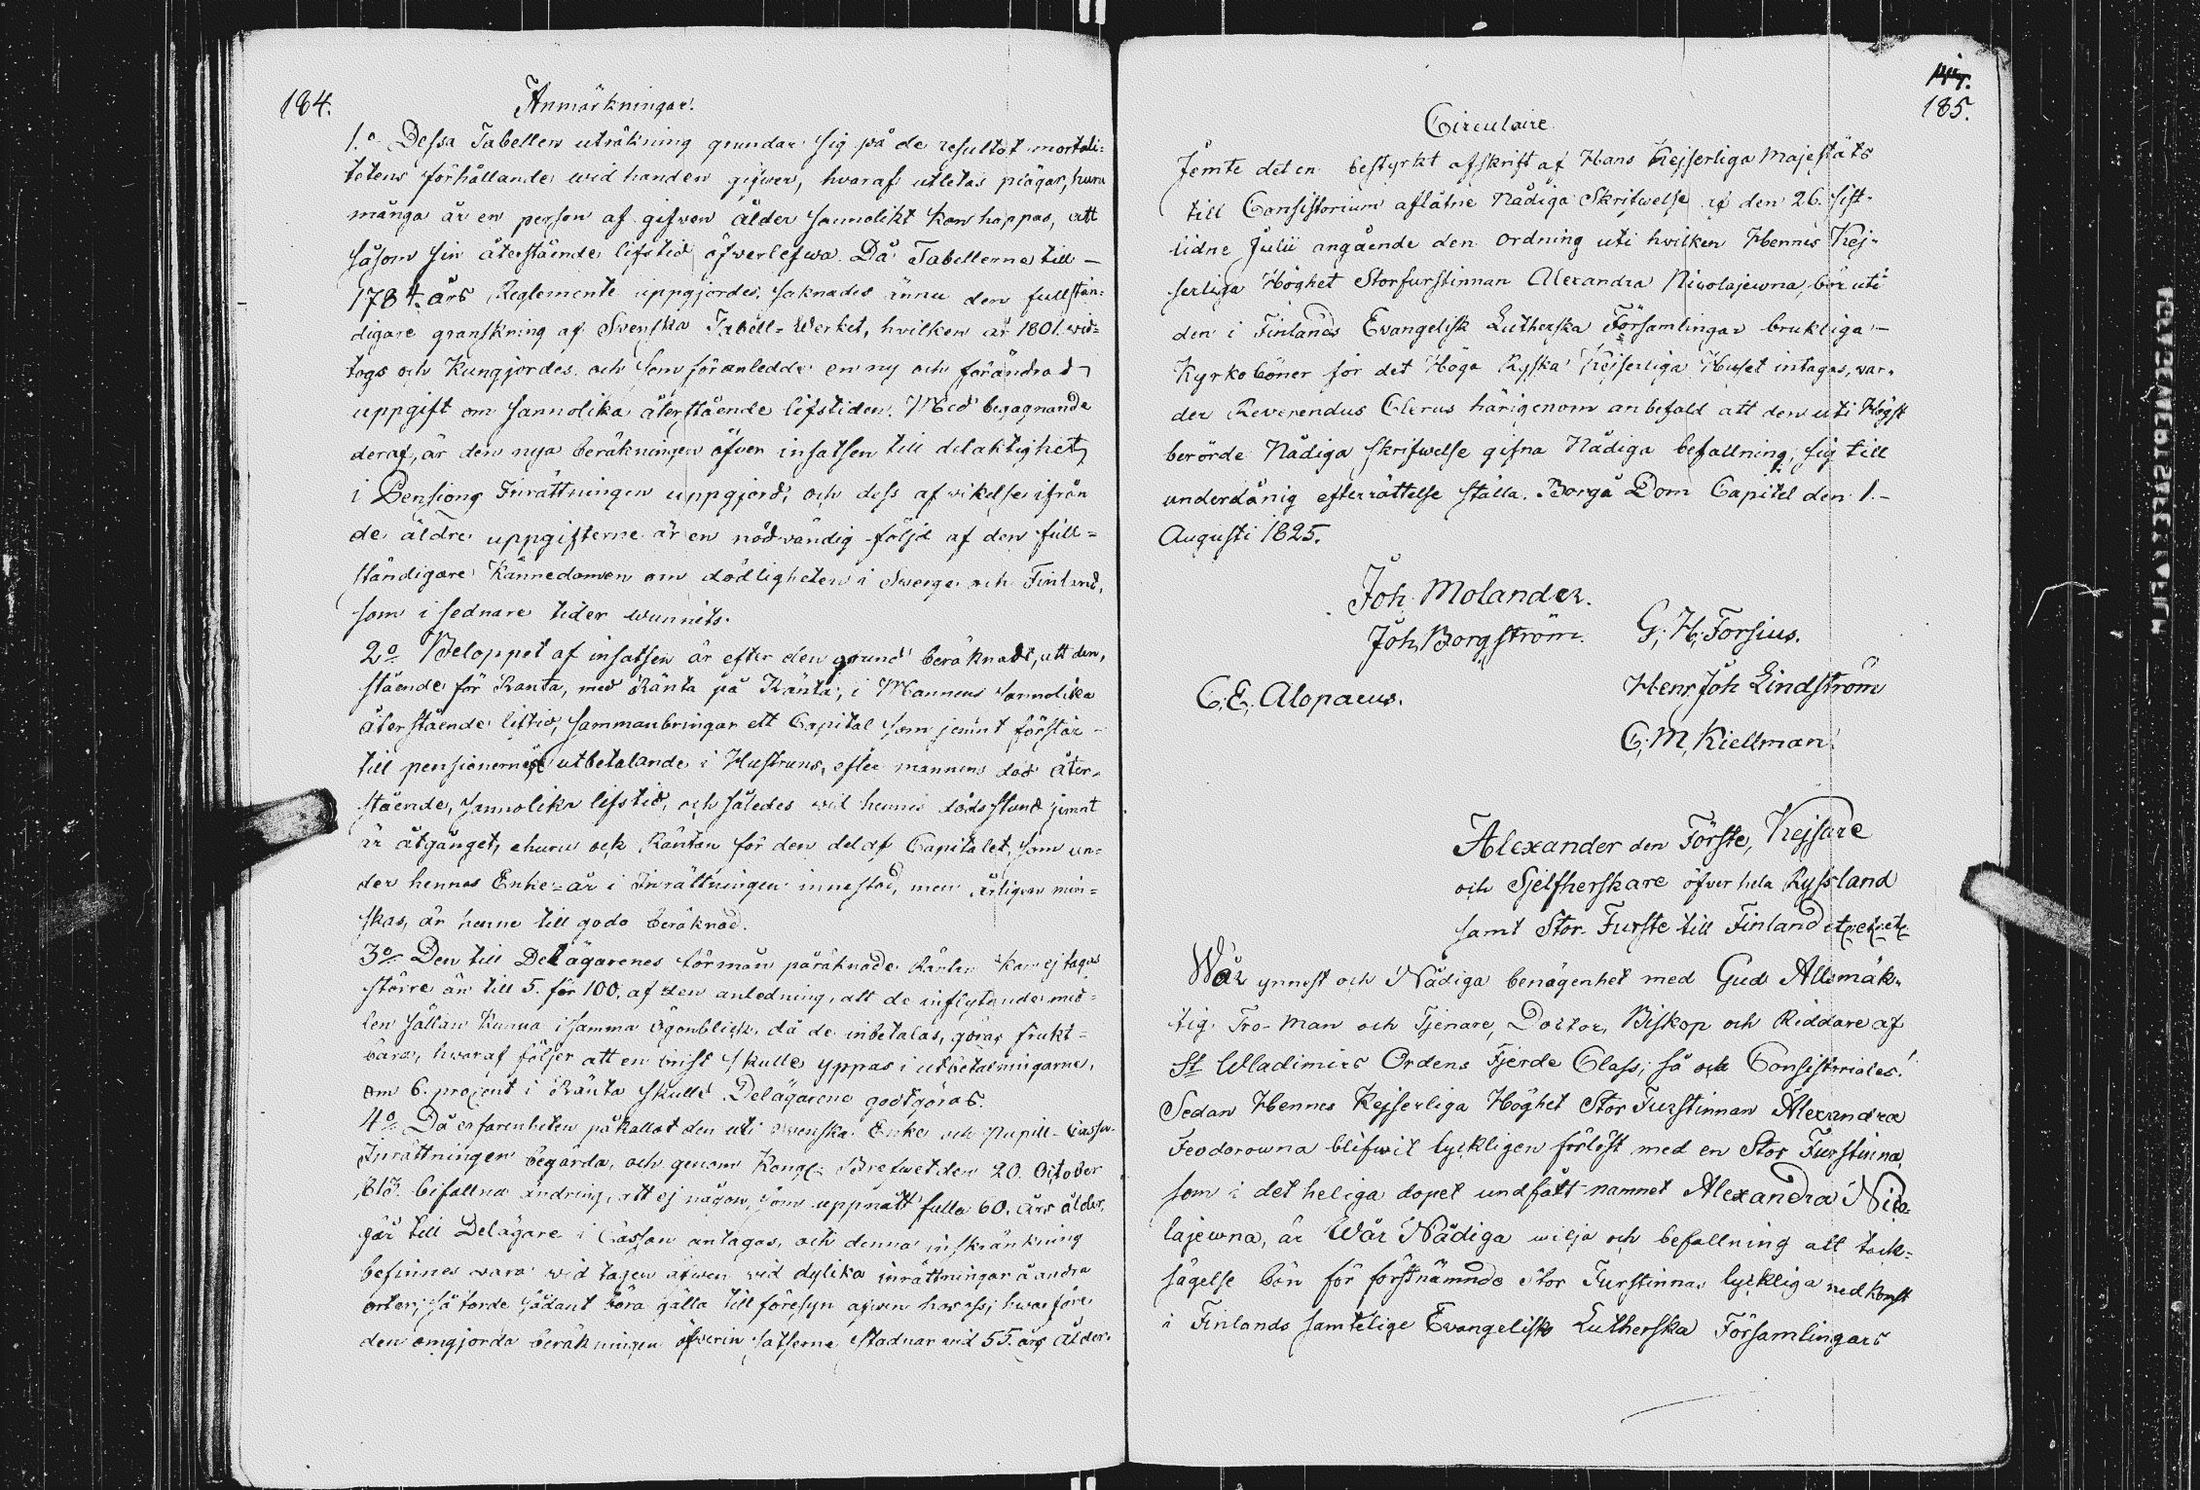 184.
Anmärkningar.
1.o Dessa Tabellers uträkning grundar sig på de resultat mortali-
tetens förhållande wid handen gifver, hvaraf utletas plägar, huru
många år en person af gifven ålder sannolikt kan hoppas, att
såsom sin återstående lifstid öfverlefwa. Då Tabellerne till –
1784. års Reglemente uppgjordes, saknades ännu den fullstän-
digare granskning af Svenska Tabell-Werket, hvilken år 1801. vid-
togs och Kungjordes, och som föranledde en ny och förändrad
uppgift om sannolika återstående lifstiden. Med begagnande
deraf, är den nya beräkningen öfver insatsen till delaktighet
i Pensions Inrättningen uppgjord, och dess afvikelse ifrån
de äldre uppgifterne är en nödvändig följd af den full-
ständigare Kännedomen om dödligheten i Sverge och Finland,
som i sednare tider wunnits.
2o Beloppet af insatsen är efter den grund beräknadt, att den,
stående för Ranta, med Ränta på Ränta, i Mannens sannolika
återstående liftid, sammanbringar ett Capital som jemnt förslår –
till pensionernes utbetalande i Hustruns, efter mannens död åter-
stående, sannolika lifstid, och således vid hennes dödsstund jemnt
är åtgånget, ehuru och Räntan för den del af Capitalet, som un-
der hennes Enke-år i Inrättningen innestod, men årligen min-
skas, är henne till godo beräknad.
3o Den till Delägarenes förmån påräknade Räntan kan ej tagas
större än till 5. för 100. af den anledning, att de inflytande med-
len sällan kunna i samma ögonblick, då de inbetalas, göras frukt-
bara, hvaraf följer att en brist skulle yppas i utbetalningarne,
om 6. procent i Ränta skulle Delägarene godtgöras.
4o Då erfarenheten påkallat den uti Svenska Enke och Pupill-Cassa-
Inrättningen begärda, och genom Kongl. Brefwet den 20. October
1813. bifallna ändring, att ej någon, som uppnått fulla 60. års ålder,
går till Delägare i Cassan antagas, och denna inskränkning
befinnes vara vid tagen äfwen vid dylika inrättningar å andra
orter; så torde sådant böra gälla till föresyn äfwen hos oss; hwarföre
den omgjorda beräkningen öfver insatserne stadnar vid 55. års ålder.
185.
Circulaire.
Jemte det en bestyrkt afskrift af Hans Kejserliga Majestäts
till Consistorium aflåtne Nådiga Skrifwelse af den 26. sist-
lidne Julii angående den ordning uti hvilken Hennes Kej-
serliga Höghet Storfurstinnan Alexandra Nicolajewna, bör uti
den i Finlands Evangelisk Lutherska Församlingar brukliga –
Kyrkoböner för det Höga Ryska Kejserliga Huset intagas, var-
der Reverendus Clerus härigenom anbefald att den uti Högst
berörde Nådiga skrifwelse gifna Nådiga befallning, sig till
underdånig efterrättelse ställa. Borgå Dom Capitel den 1. –
Augusti 1825.
Joh. Molander.
Joh. Borgström. G. H. Forsius.
C. E. Alopaeus. Henr Joh Lindström
C. M. Kiellman.
Alexander den Förste, Kejsare
och Sjelfherskare öfver hela Ryssland
samt Stor-Furste till Finland etc etc etc
Wår ynnest och Nådiga benägenhet med Gud Allsmäk-
tig. Tro-Man och Tjenare, Doctor, Biskop och Riddare af
St Wladimirs Ordens Fjerde Class, så och Consistoriales!
Sedan Hennes Kejserliga Höghet Stor Furstinnan Alexandra
Feodorowna blifwit lyckligen förlöst med en Stor Furstinna,
som i det heliga dopet undfått namnet Alexandra Nico-
lajewna, är Wår Nådiga wilja och befallning att tack-
sägelse bön för förstnämnde Stor Furstinnas lyckliga nedkomst
i Finlands samtelige Evangeliske Lutherska Församlingars